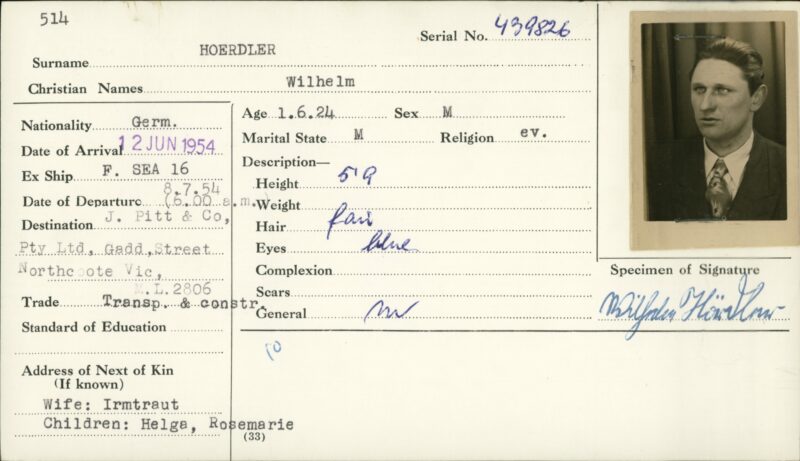 514
Serial No. 439826
Surname HOERDLER
Christian Names Wilhelm
Nationality Germ.
Date of Arrival 12 JUN 1954
Ex Ship F. SEA 16
8.7.54
Date of Departure (6.00 a.m.
Destination J. Pitt & Co,
Pty Ltd, Gadd,Street
Northcote Vic,
M.L.2806
Trade Transp. & constr.
Standard of Education
Address of Next of Kin
(If known)
Wife: Irmtraut
Children: Helga, Rosemarie
Age 1.6.24 Sex M
Marital State M Religion ev.
Description—
Height 5'9
Weight
Hair fair
Eyes blue
Complexion
Scars
General
(33)
Specimen of Signature
Wilhelm Hördler